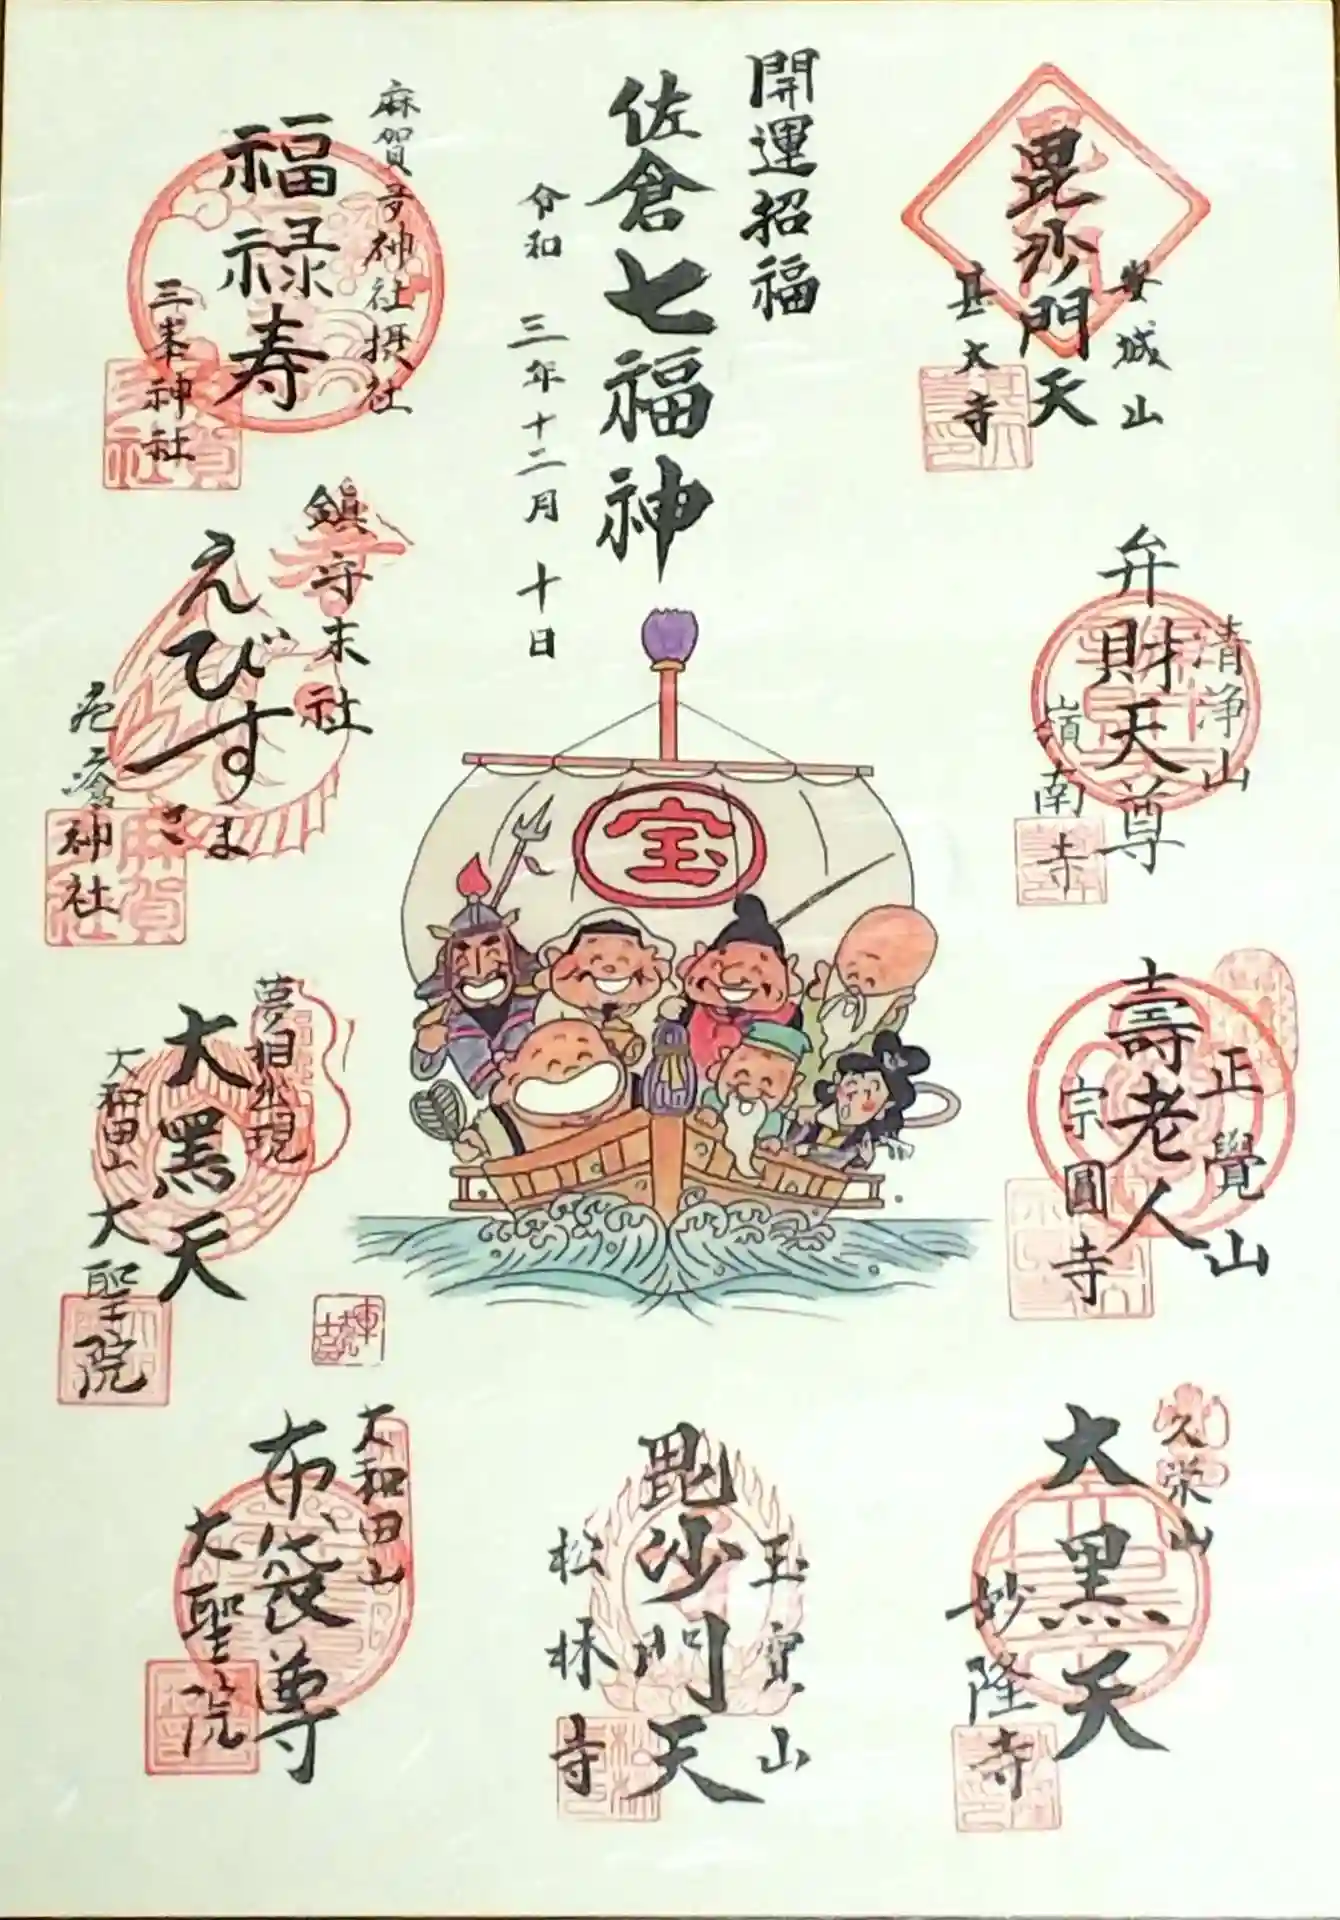 開運招福
佐倉七福神
令和 三年十二月 十日
安城山
毘沙門天
甚大寺
清浄山
弁財天尊
嶺南寺
正覺山
壽老人
宗圓寺
久栄山
大黒天
妙隆寺
玉寳山
毘沙門天
松林寺
麻賀多神社摂社
福禄寿
三峯神社
鎮守末社
えびすさま
疱瘡神社
夢想出現
大黒天
大和田山 大聖院
大和田山
布袋尊
大聖院
宝